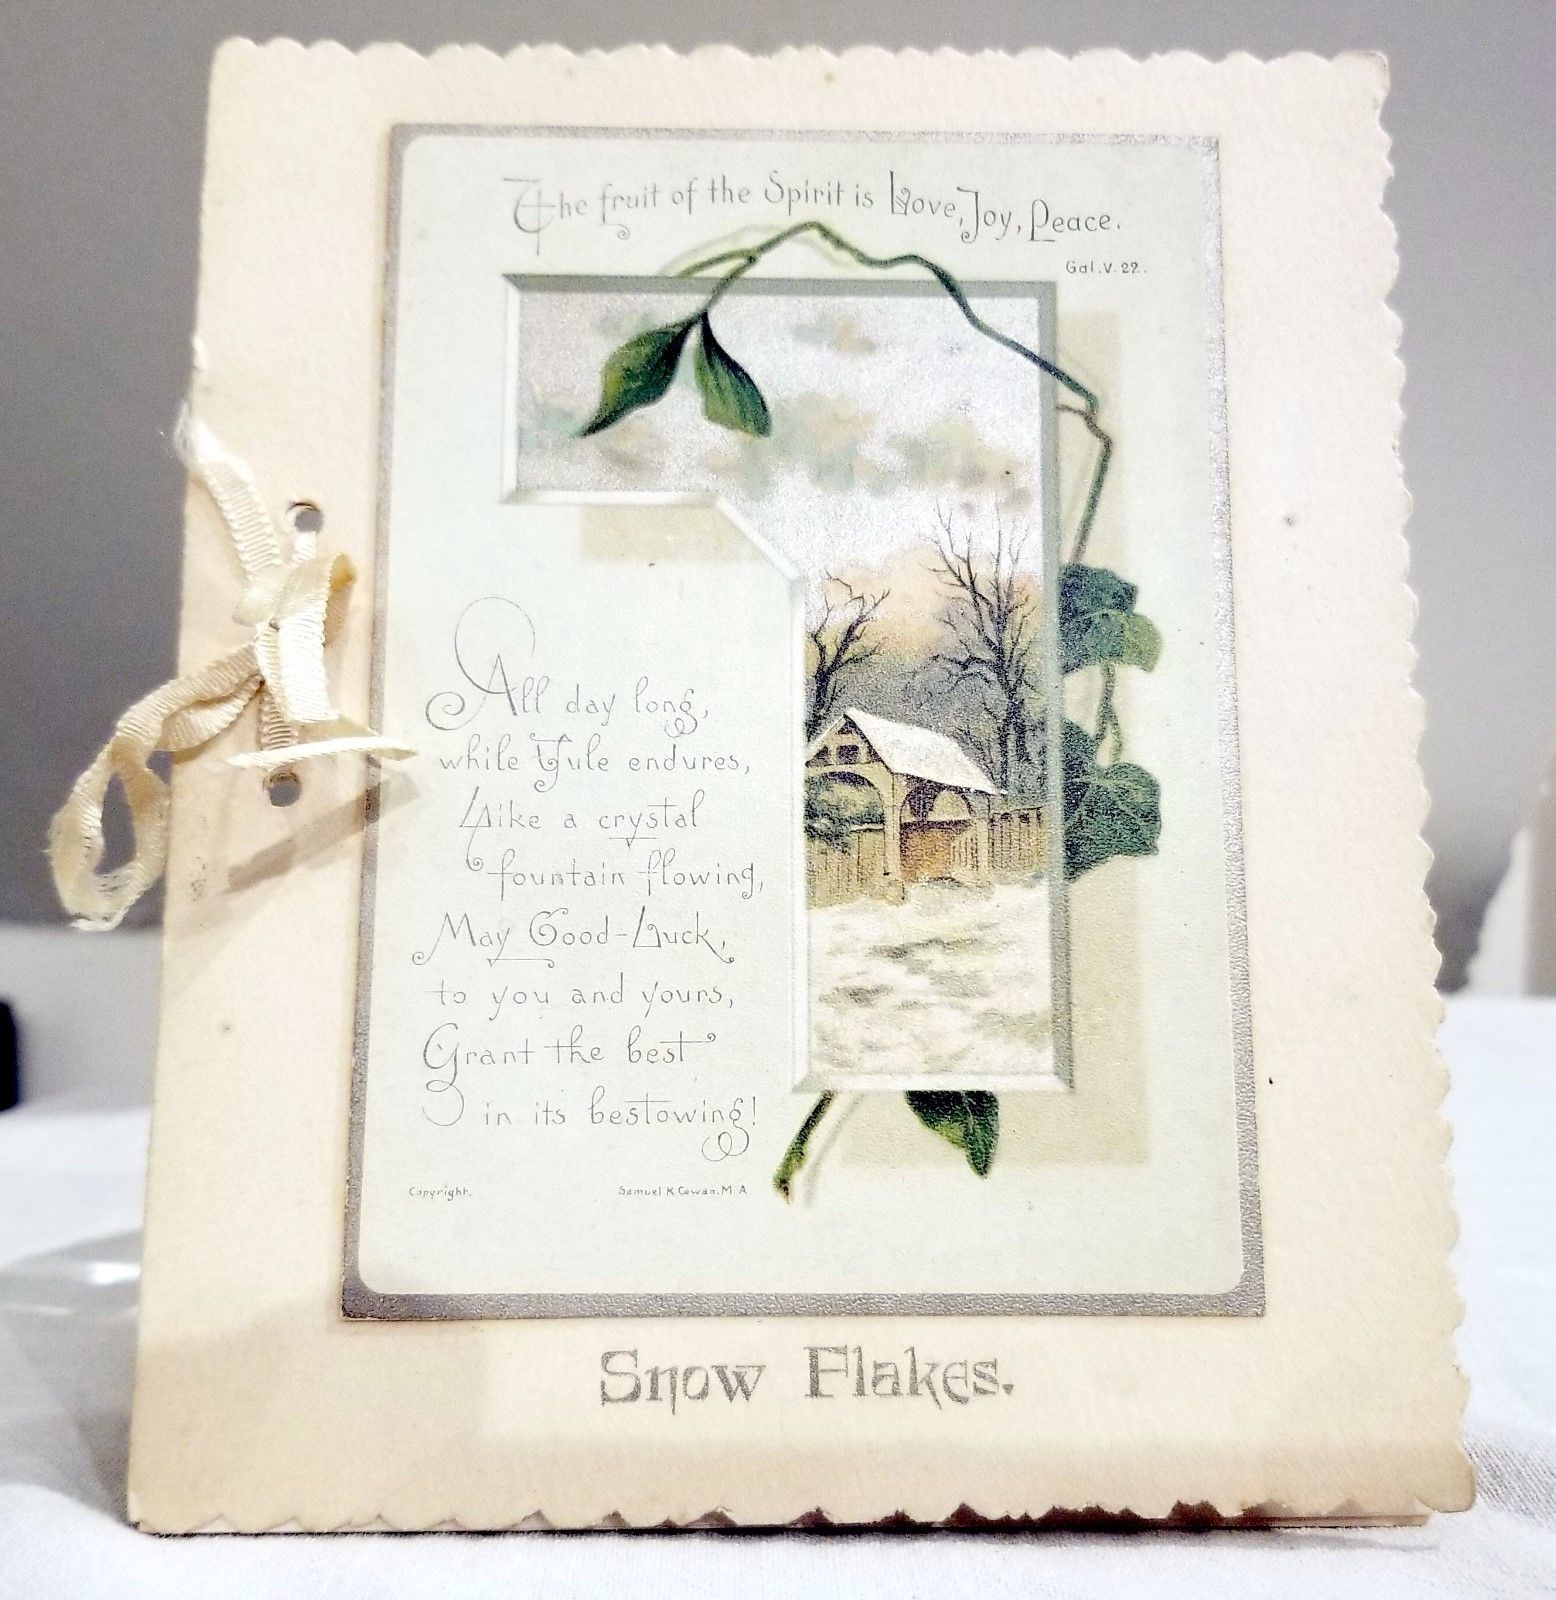 The fruit of the Spirit is Love, Joy, Peace.
Gal. V. 22.
All day long,
while Yule endures,
Like a crystal
fountain flowing,
May Good-Luck,
to you and yours,
Grant the best
in its bestowing!
Copyright. Samuel K Cowan. M A
Snow Flakes.